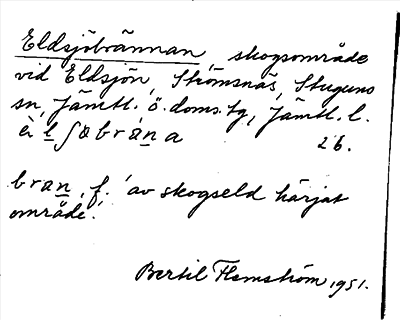 Eldsjöbrännan skogsområde
vid Eldsjön, Strömsnäs, Stuguns
sn, Jämtl. ö. doms. tg, Jämtl. l.
èl̲ʃøbrán̲a 26.
bran̲, f. 'av skogseld härjat
område'.
Bertil Flemström 1951.